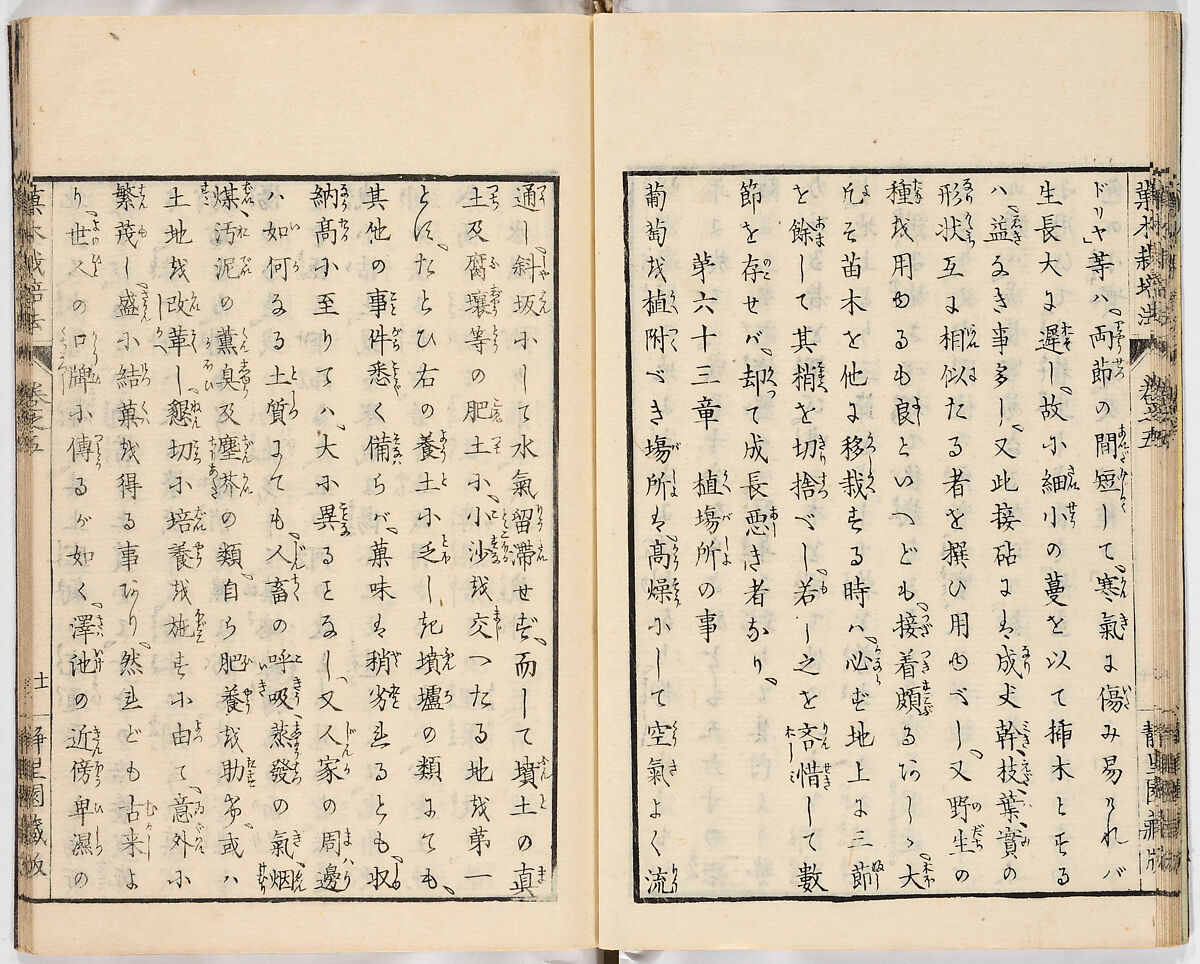 菓木栽培法 卷之五 靜里園藏版
ドリヤ」等ハ、両節の間短して、寒氣に傷み易けれバ
生長大に遅し、故に細小の蔓を以て挿木とする
ハ、益なき事多し、又此接砧には、成丈幹、枝、葉、實の
形状互に相似たる者を撰ひ用ゆべし、又野生の
種を用ゆるも良といへども、接着頗るかたし、大
凡そ苗木を他に移栽する時ハ、必ず地上に三節
を餘して其梢を切捨べし、若し之を吝惜して數
節を存せバ、却て成長悪き者なり、
第六十三章 植塲所の事
葡萄を植附べき塲所は、高燥にして空氣よく流
通し、斜坂にして水氣留滯せず、而して墳土の真
土及腐壤等の肥土に、小沙を交へたる地を第一
とす、たとひ右の養土に乏しき墳壚の類にても、
其他の事件悉く備らバ、菓味は稍劣るとも、収
納高に至りてハ、大に異るとなし、又人家の周邊
ハ如何なる土質にても、人畜の呼吸蒸發の氣、烟
煤、汚泥の薫臭及塵芥の類、自ら肥養を助け、或ハ
土地を改革し、懇切に培養を施すに由て、意外に
繁茂し盛に結菓を得る事あり、然れども古来よ
り、世人の口牌に傳るが如く、澤池の近傍卑濕の
菓木栽培法 卷之五 十一 靜里園藏版